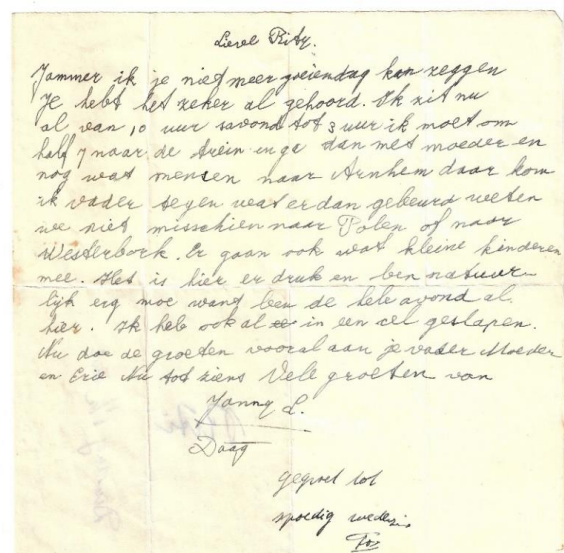 Lieve Rity.
Jammer ik je niet meer goeiendag kan zeggen
Je hebt het zeker al gehoord. Ik zit nu
al van 10 uur savond tot 3 uur ik moet om
half 7 naar de trein en ga dan met moeder en
nog wat mensen naar Arnhem daar kom
ik vader tegen wat er dan gebeurd weten
we niet misschien naar Polen of naar
Westerbork. Er gaan ook wat kleine kinderen
mee. Het is hier er druk en ben natuur-
lijk erg moe want ben de hele avond al
hier. Ik heb ook al in een cel geslapen.
Nu doe de groeten vooral aan je vader Moeder
en Erie Nu tot ziens Vele groeten van
Janny L.
Daag
gegroet tot
spoedig